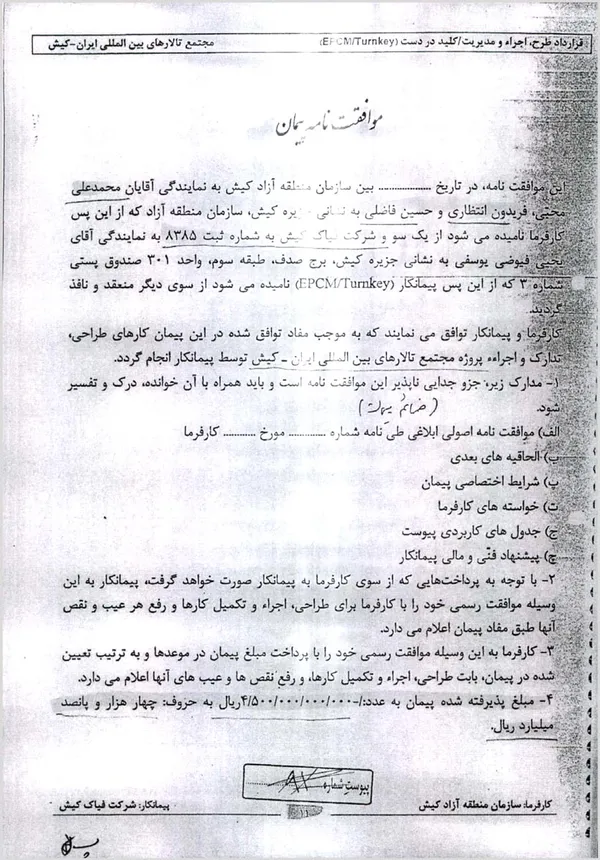 قرارداد طرح، اجراء و مدیریت/کلید در دست (EPCM/Turnkey)
مجتمع تالارهای بین المللی ایران-کیش
موافقت نامه پیمان
این موافقت نامه، در تاریخ .................. بین سازمان منطقه آزاد کیش به نمایندگی آقایان محمدعلی
محبی، فریدون انتظاری و حسین فاضلی به نشانی جزیره کیش، سازمان منطقه آزاد که از این پس
کارفرما نامیده می شود از یک سو و شرکت فیاک کیش به شماره ثبت ۸۳۸۵ به نمایندگی آقای
یحیی فیوضی یوسفی به نشانی جزیره کیش، برج صدف، طبقه سوم، واحد ۳۰۱ صندوق پستی
شماره ۳ که از این پس پیمانکار (EPCM/Turnkey) نامیده می شود از سوی دیگر منعقد و نافذ
گردید.
کارفرما و پیمانکار توافق می نمایند که به موجب مفاد توافق شده در این پیمان کارهای طراحی،
تدارک و اجراء، پروژه مجتمع تالارهای بین المللی ایران - کیش توسط پیمانکار انجام گردد.
۱- مدارک زیر، جزو جدایی ناپذیر این موافقت نامه است و باید همراه با آن خوانده، درک و تفسیر
شود.
الف) موافقت نامه اصولی ابلاغی طی نامه شماره ............. مورخ ............ کارفرما
ب) الحاقیه های بعدی
پ) شرایط اختصاصی پیمان
ت) خواسته های کارفرما
ج) جدول های کاربردی پیوست
چ) پیشنهاد فنی و مالی پیمانکار
۲- با توجه به پرداخت‌هایی که از سوی کارفرما به پیمانکار صورت خواهد گرفت، پیمانکار به این
وسیله موافقت رسمی خود را با کارفرما برای طراحی، اجراء و تکمیل کارها و رفع هر عیب و نقص
آنها طبق مفاد پیمان اعلام می دارد.
۳- کارفرما به این وسیله موافقت رسمی خود را با پرداخت مبلغ پیمان در موعدها و به ترتیب تعیین
شده در پیمان، بابت طراحی، اجراء و تکمیل کارها، و رفع نقص ها و عیب های آنها اعلام می دارد.
۴- مبلغ پذیرفته شده پیمان به عدد:/-۴/۵۰۰/۰۰۰/۰۰۰/۰۰۰ریال به حروف: چهار هزار و پانصد
میلیارد ریال.
پیوست شماره
کارفرما: سازمان منطقه آزاد کیش
پیمانکار: شرکت فیاک کیش